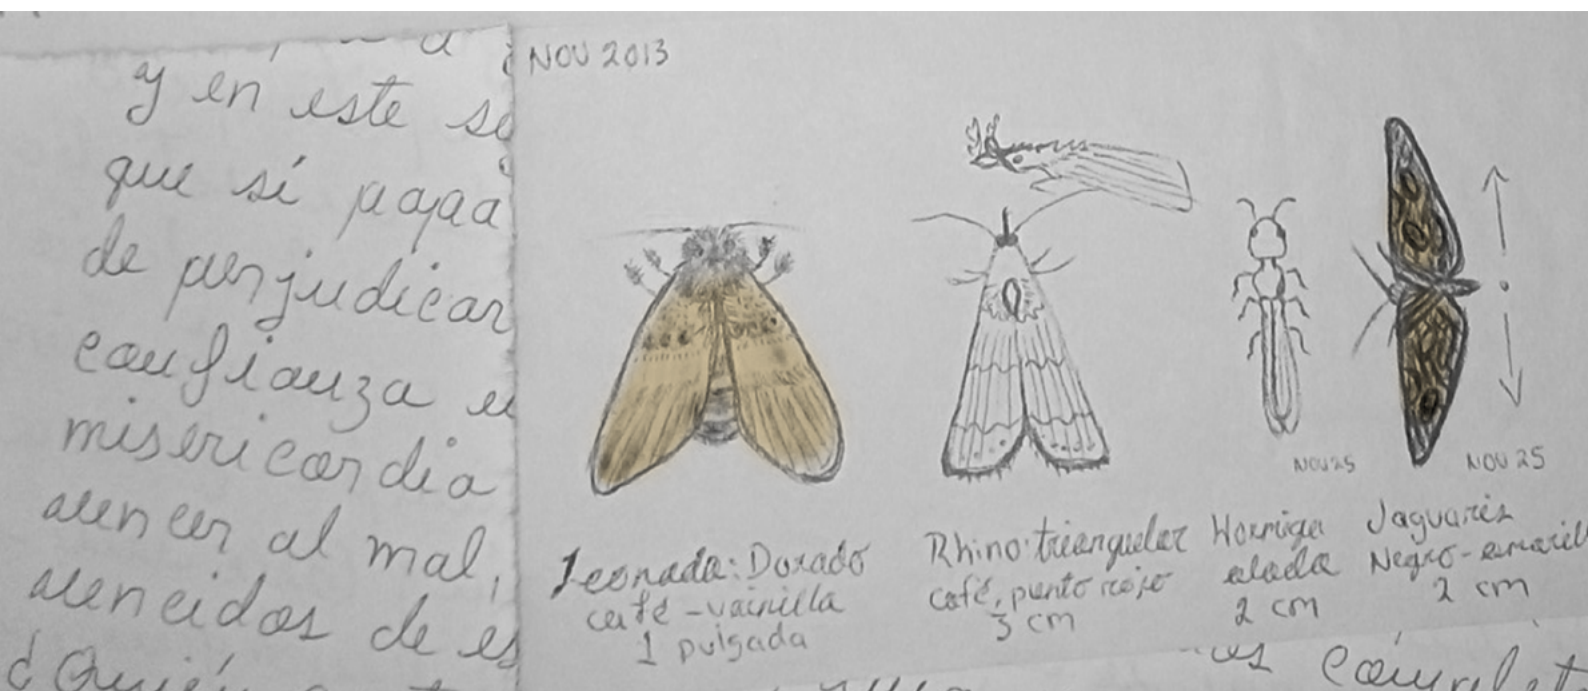 y en este se
que sí papa
de perjudicar
confianza
misericordia
vencer al mal,
vencidos de es
¿Quién
NOV 2013
Leonada: Dorado
café-vainilla
1 pulgada
Rhino: triangular
café, punto rojo
3 cm
NOV 25
Hormiga
alada
2 cm
NOV 25
Jaguariz
Negro-amarill
2 cm